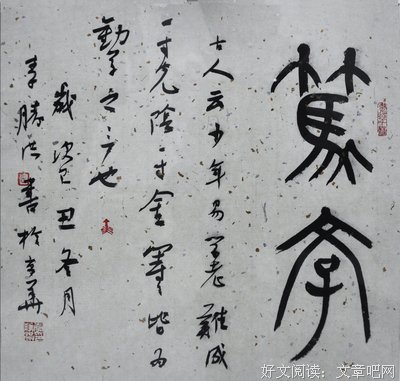 篤学
古人云少年易学老難成
一寸光陰一寸金等皆為
勸学之言也
歲次己丑冬月
李勝洪書於京華
好文阅读：文章吧网